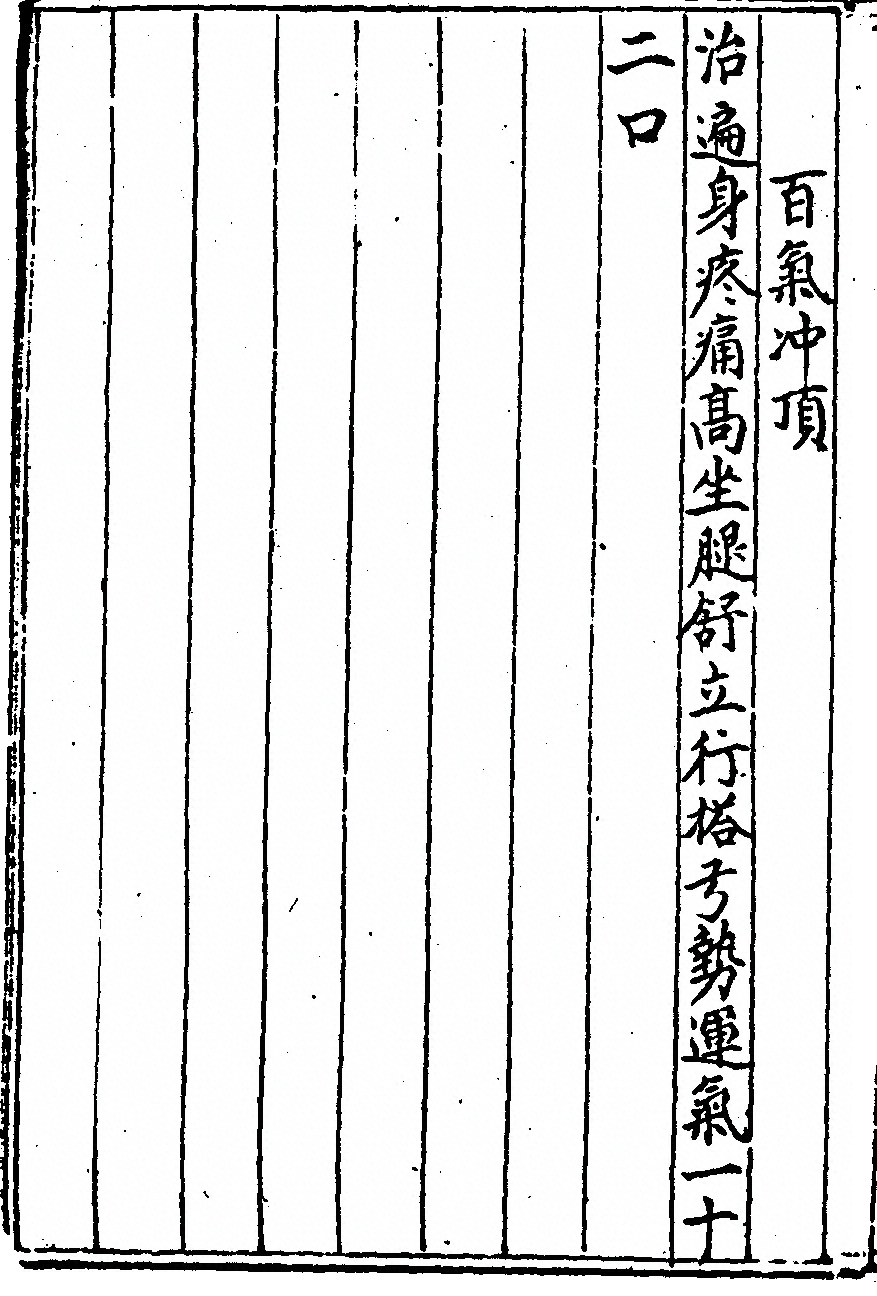 百氣冲頂
治遍身疼痛髙坐腿舒立行搭弓勢運氣一十
二口